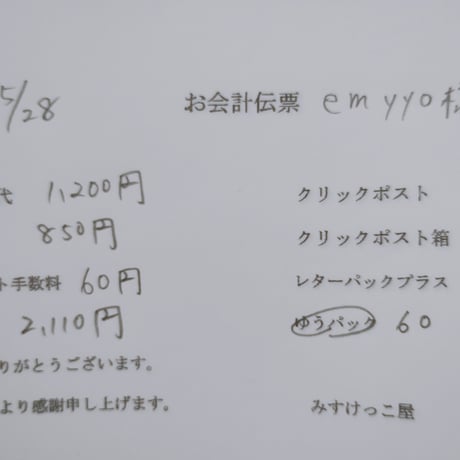 5/28 お会計伝票 emyyo様
代 1,200円 クリックポスト
850円 クリックポスト箱
ト手数料 60円 レターパックプラス
2,110円 ゆうパック 60
りがとうございます。
より感謝申し上げます。 みすけっこ屋